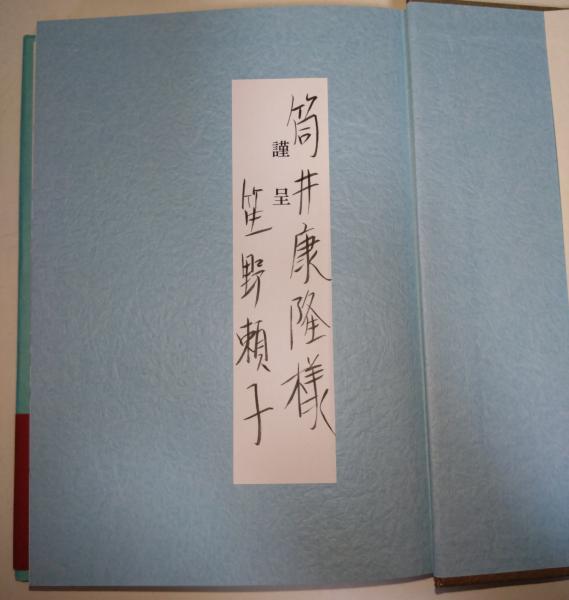 筒井康隆様
謹呈
笙野頼子